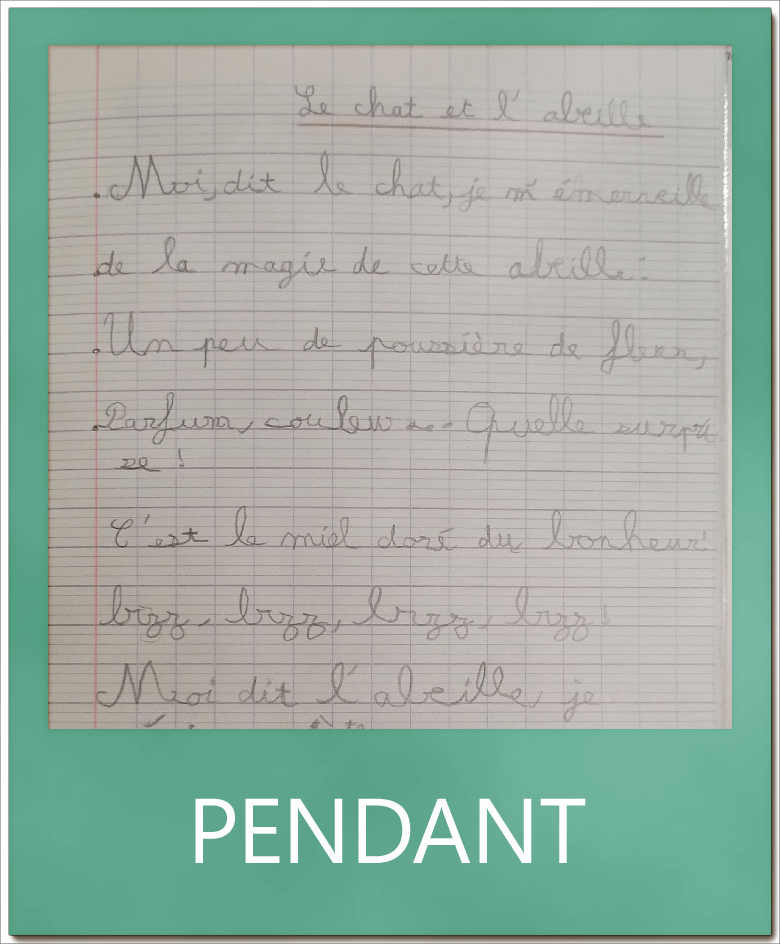 Le chat et l'abeille
Moi, dit le chat, je m'émerveille
de la magie de cette abeille:
Un peu de poussière de fleur,
Parfum, couleur... Quelle surpri
se !
C'est le miel doré du bonheur!
bzzz, bzzz, bzzz, bzzz!
Moi dit l'abeille, je
PENDANT